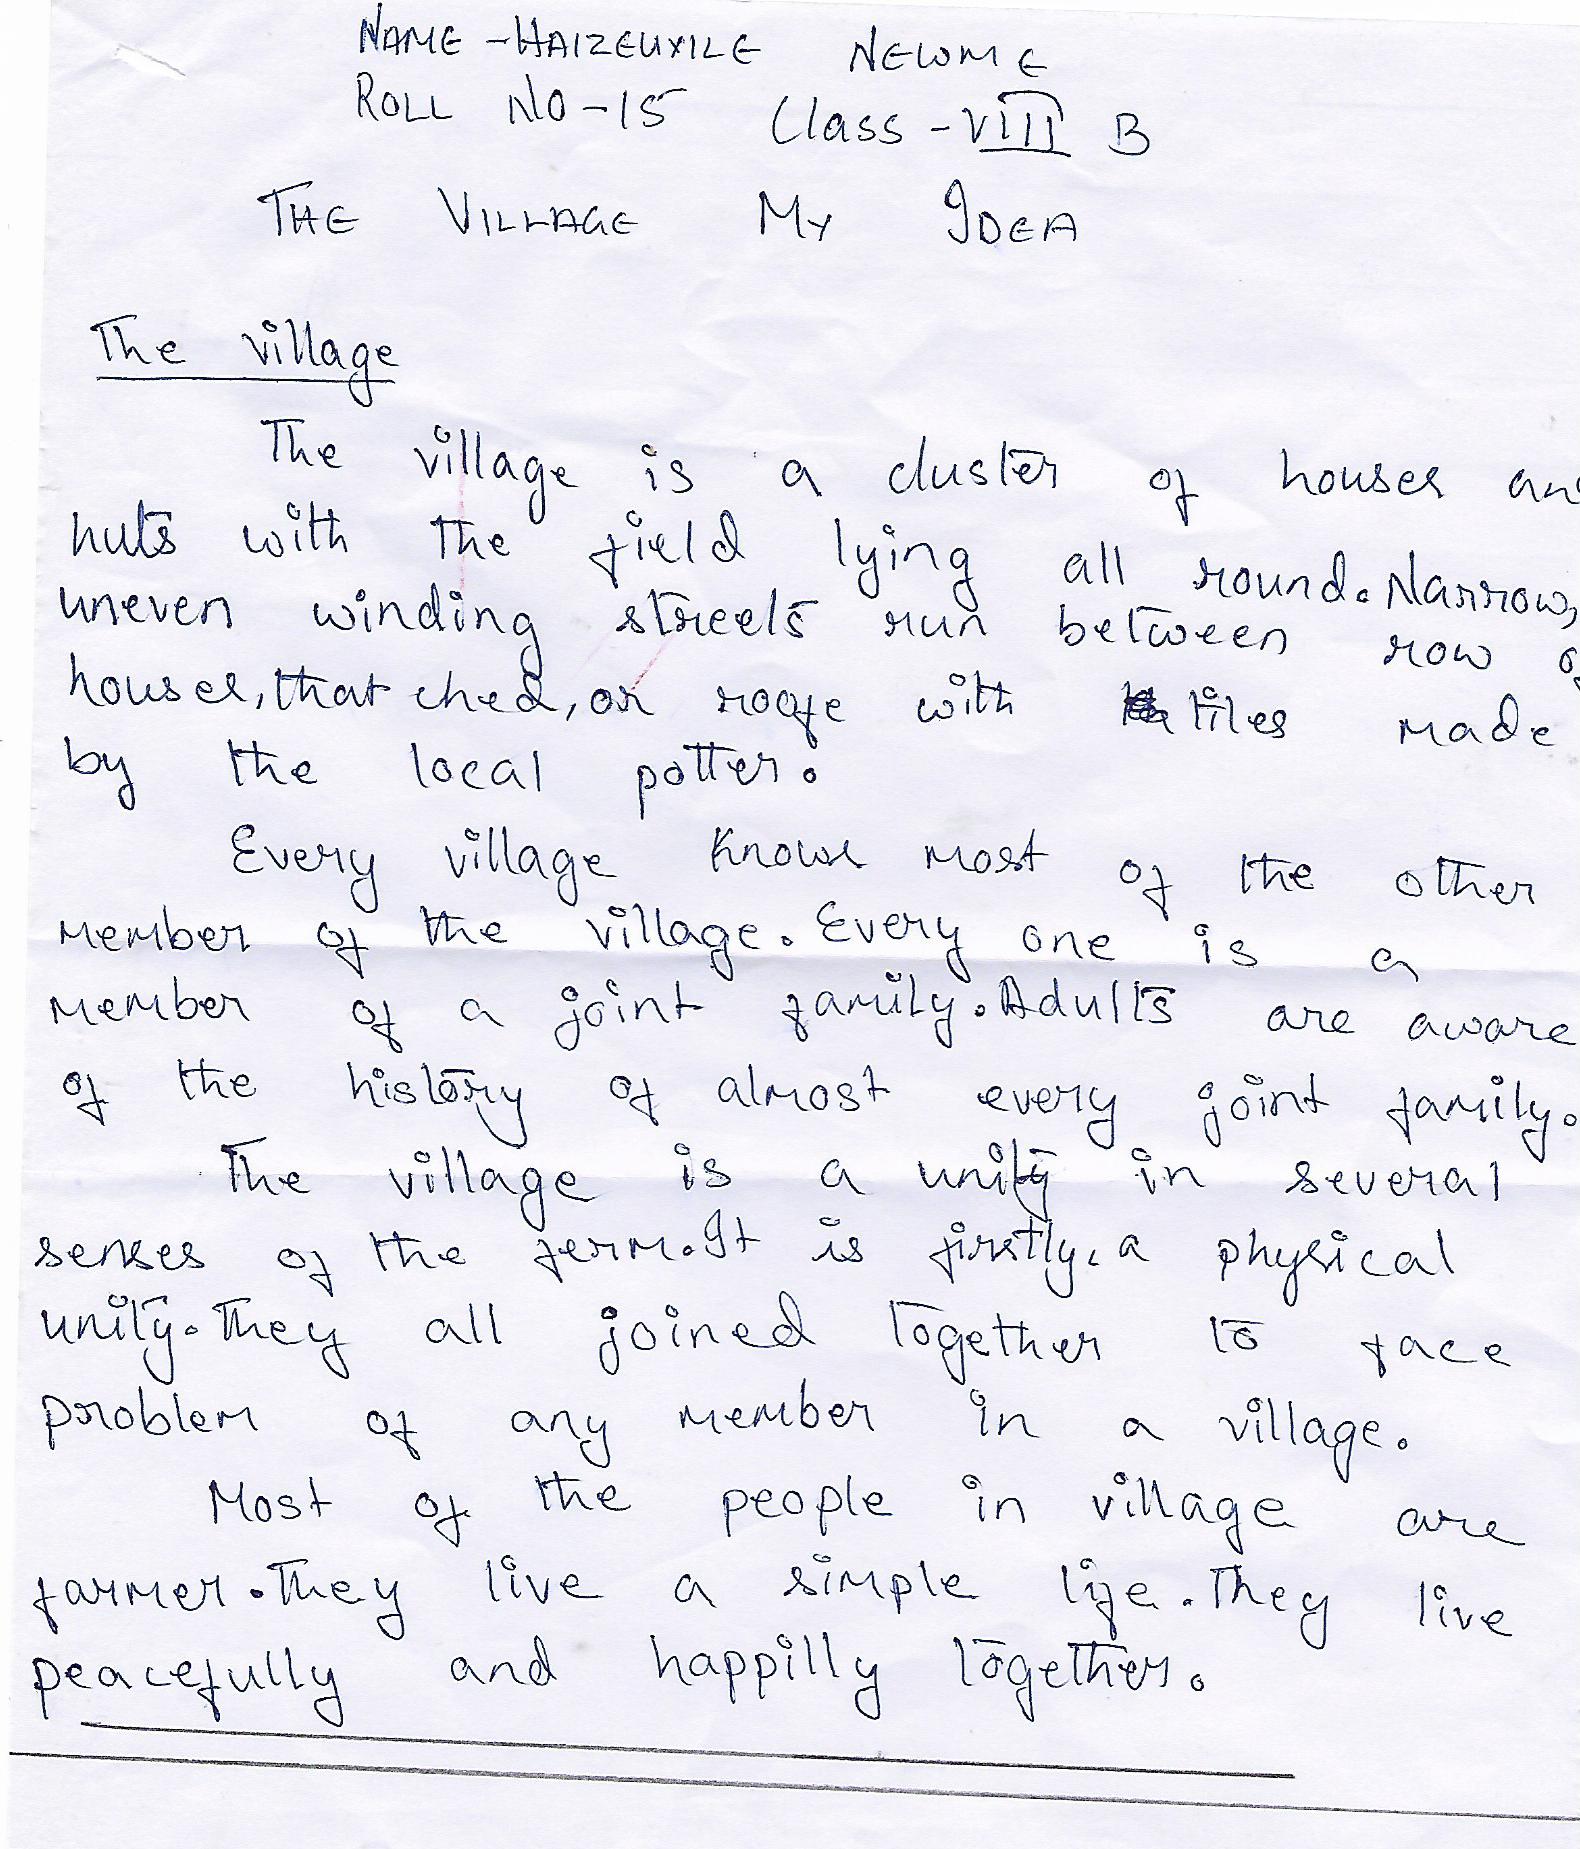 NAME - HAIZEUXILE NEWME
ROLL NO - 15 Class - VIII B
THE VILLAGE MY IDEA
The village
The village is a cluster of houses an
huts with the field lying all round. Narrow,
uneven winding streets run between row of
houses, that ched, or roofe with tiles made
by the local potter.
Every village knows most of the other
member of the village. Every one is a
member of a joint family. Adults are aware
of the history of almost every joint family.
The village is a unity in several
senses of the ferm. It is firstly, a physical
unity. They all joined together to face
problem of any member in a village.
Most of the people in village are
farmer. They live a simple life. They live
peacefully and happilly together.